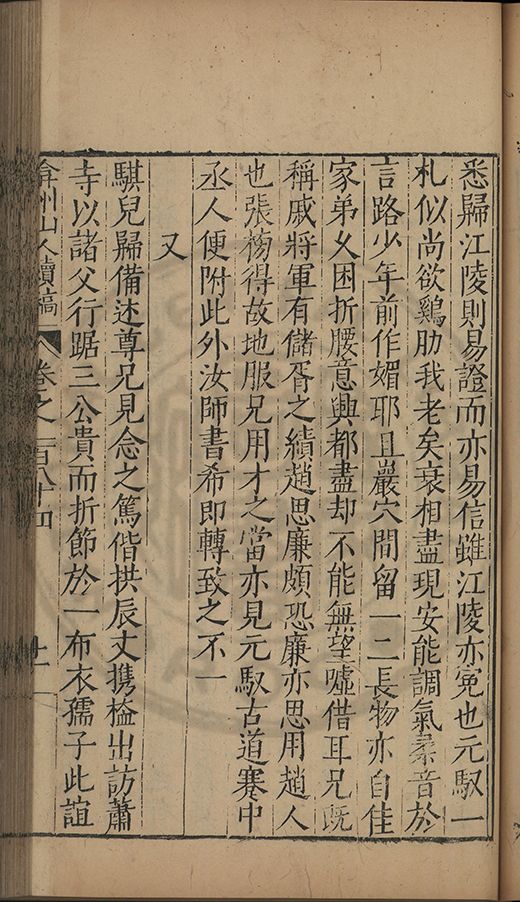 悉歸江陵則易證而亦易信雖江陵亦冤也元馭一
札似尚欲鷄肋我老矣衰相盡現安能調氣柔音於
言路少年前作媚耶且巖穴間留一二長物亦自佳
家弟乆困折腰意興都盡却不能無望噓借耳兄既
稱戚將軍有儲胥之績趙思廉頗恐廉亦思用趙人
也張楊得故地服兄用才之當亦見元馭古道蹇中
丞人便附此外汝師書希即轉致之不一
又
騏兒歸備述尊兄見念之篤偕拱辰丈携榼出訪蕭
寺以諸父行踞三公貴而折節於一布衣孺子此誼
弇州山人續稿 卷之一百八十四 十一